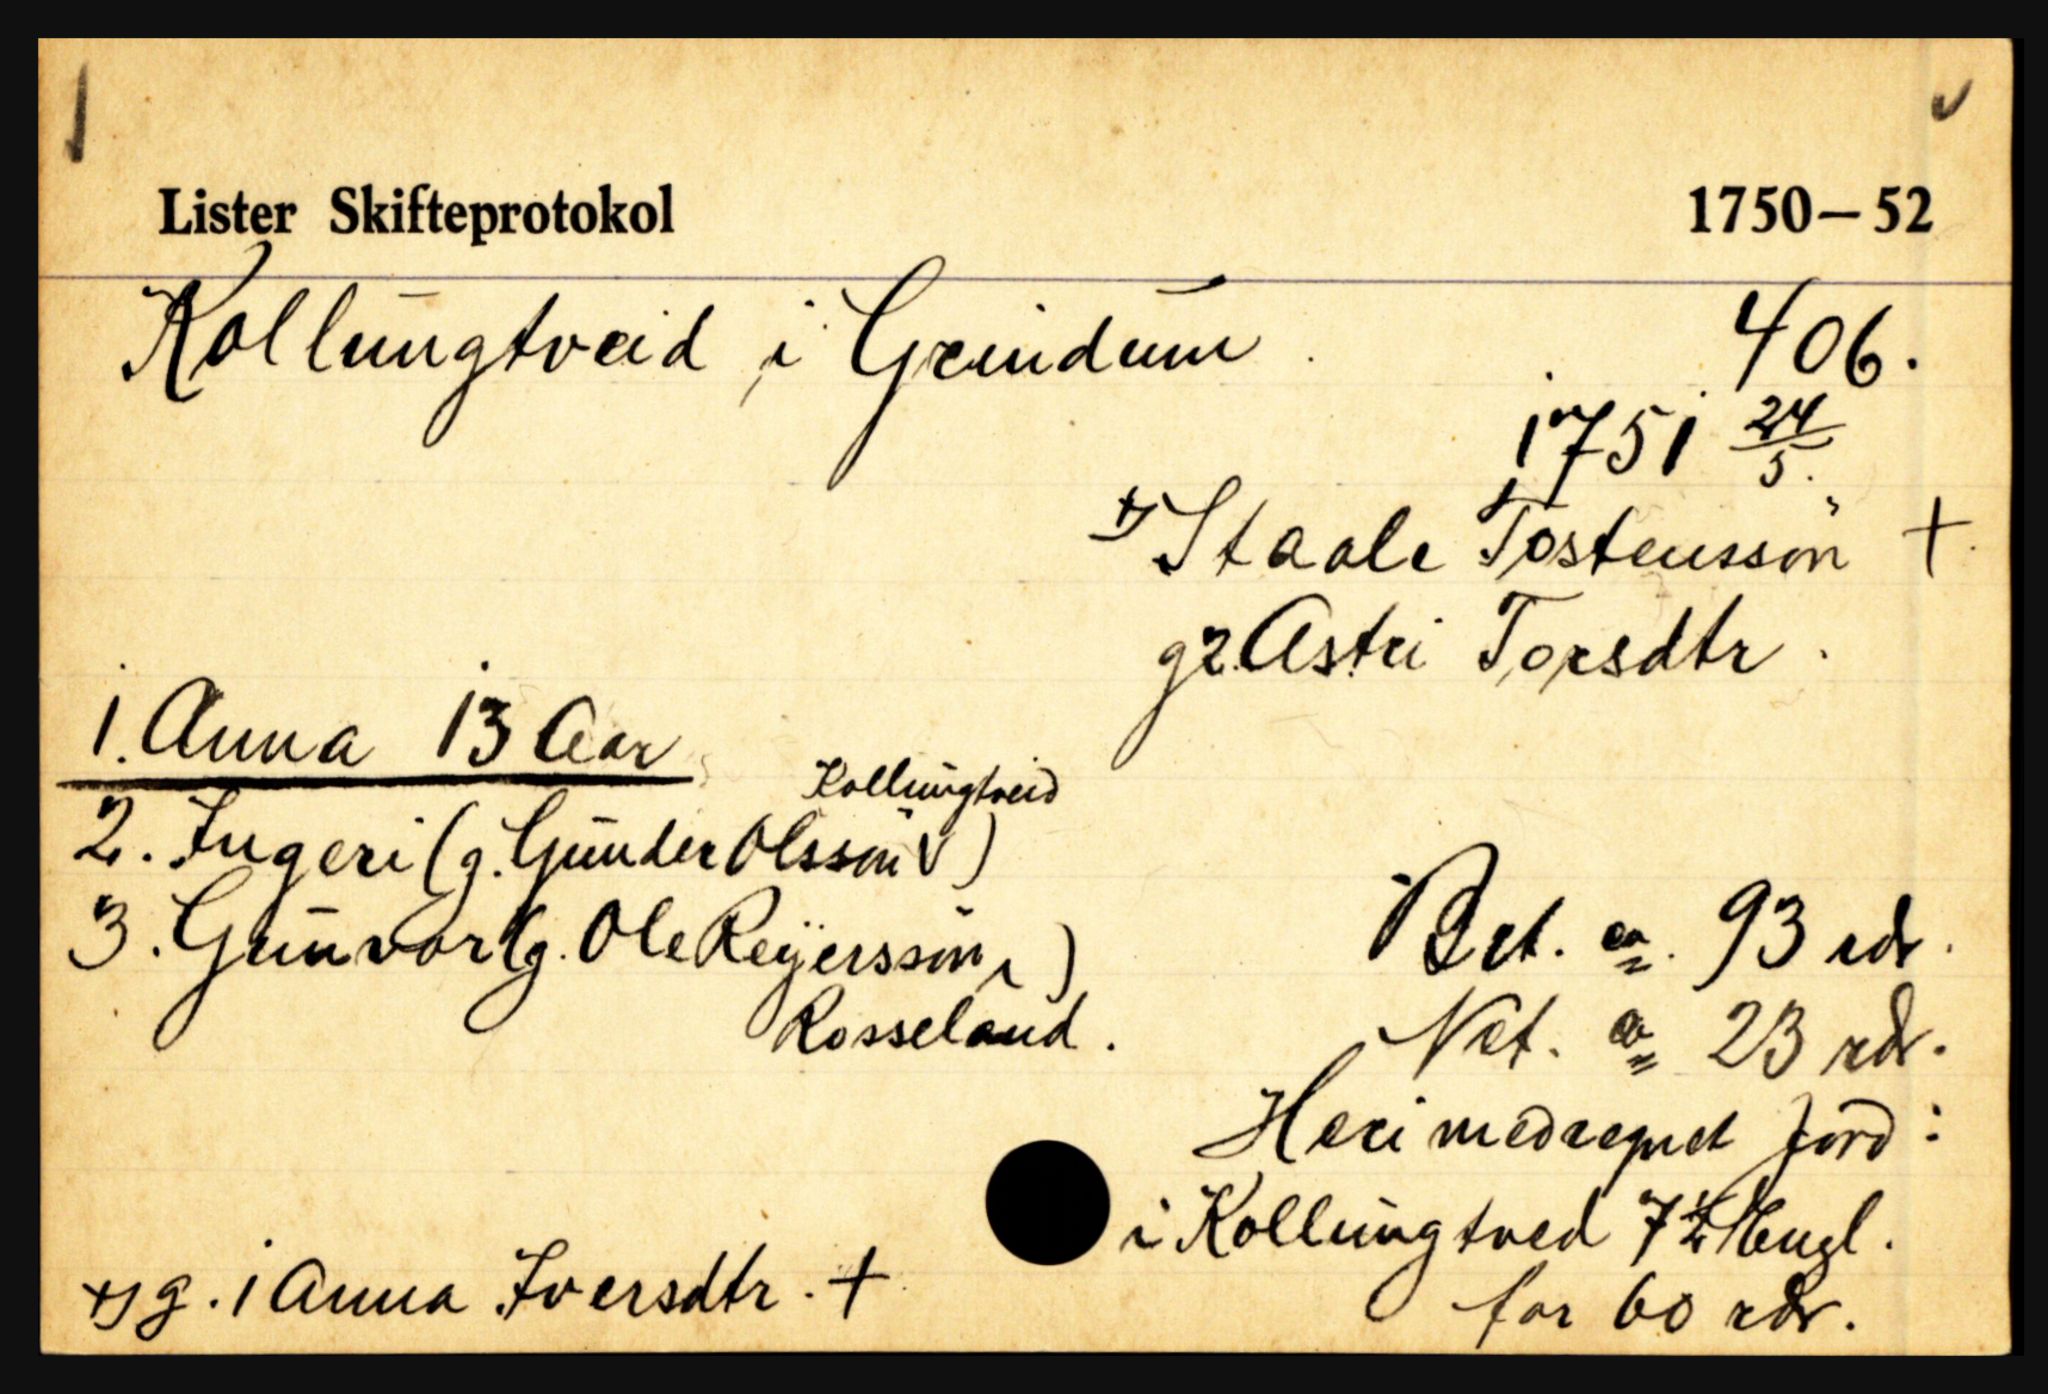 Lister Skifteprotokol 1750–52
Kollungtveid i Grindum 406.
1751 24/5.
x) Staale Tostenssön +
g 2. Astri Torsdtr.
1. Anna 13 Aar
Kollungtveid
2. Ingeri (g. Gunder Olssön v)
3. Gunvor (g. Ole Reijerssön,)
Rosseland.
Bet. ca. 93 rdr.
Net. ca 23 rdr.
Heri medregnet jord:
i Kollungtved 7 1/2 Engl.
for 60 rdr.
x) g. 1 Anna Iversdtr. +